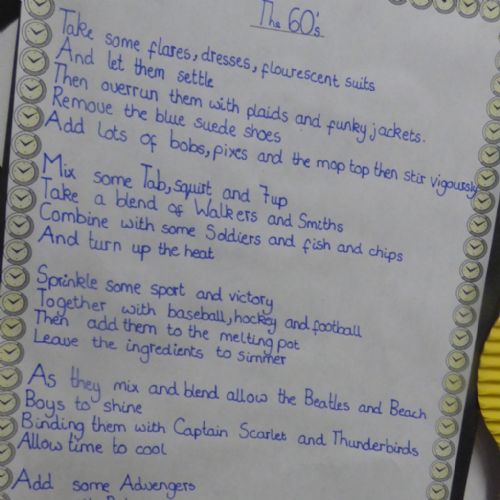 The 60's
Take some flares, dresses, flourescent suits
And let them settle
Then overrun them with plaids and funky jackets.
Remove the blue suede shoes
Add lots of bobs, pixes and the mop top then stir vigoussly
Mix some Tab, squirt and 7up
Take a blend of Walkers and Smiths
Combine with some Soldiers and fish and chips
And turn up the heat
Sprinkle some sport and victory
Together with baseball, hockey and football
Then add them to the melting pot
Leave the ingredients to simmer
As they mix and blend allow the Beatles and Beach
Boys to shine
Binding them with Captain Scarlet and Thunderbirds
Allow time to cool
Add some Advengers